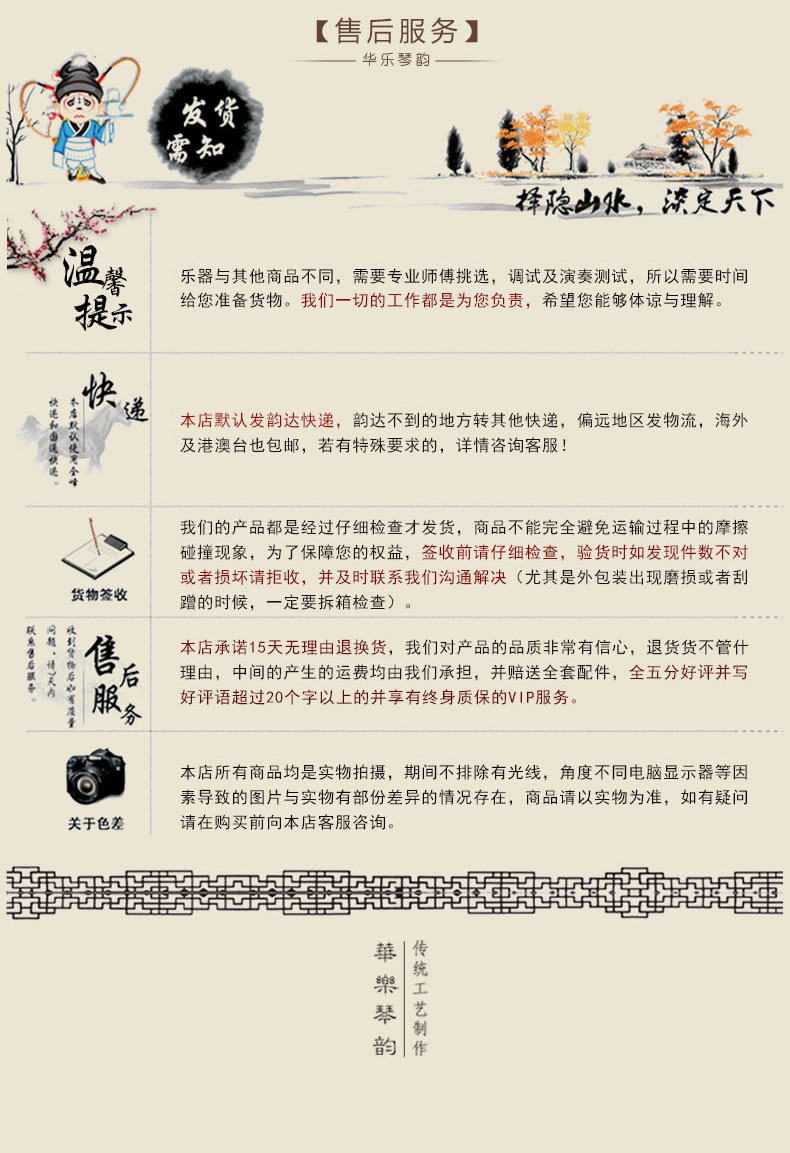 【售后服务】
华乐琴韵
发货
需知
择隐山水，淡定天下
温馨
提示
乐器与其他商品不同，需要专业师傅挑选，调试及演奏测试，所以需要时间
给您准备货物。我们一切的工作都是为您负责，希望您能够体谅与理解。
快递
本店默认使用全峰
快递和圆通快递。
本店默认发韵达快递，韵达不到的地方转其他快递，偏远地区发物流，海外
及港澳台也包邮，若有特殊要求的，详情咨询客服！
货物签收
我们的产品都是经过仔细检查才发货，商品不能完全避免运输过程中的摩擦
碰撞现象，为了保障您的权益，签收前请仔细检查，验货时如发现件数不对
或者损坏请拒收，并及时联系我们沟通解决（尤其是外包装出现磨损或者刮
蹭的时候，一定要拆箱检查）。
售后
服务
收到货物后如有质量
问题，请7天内
联系售后服务。
本店承诺15天无理由退换货，我们对产品的品质非常有信心，退货货不管什
理由，中间的产生的运费均由我们承担，并赔送全套配件，全五分好评并写
好评语超过20个字以上的并享有终身质保的VIP服务。
关于色差
本店所有商品均是实物拍摄，期间不排除有光线，角度不同电脑显示器等因
素导致的图片与实物有部份差异的情况存在，商品请以实物为准，如有疑问
请在购买前向本店客服咨询。
传统工艺制作
華樂琴韵